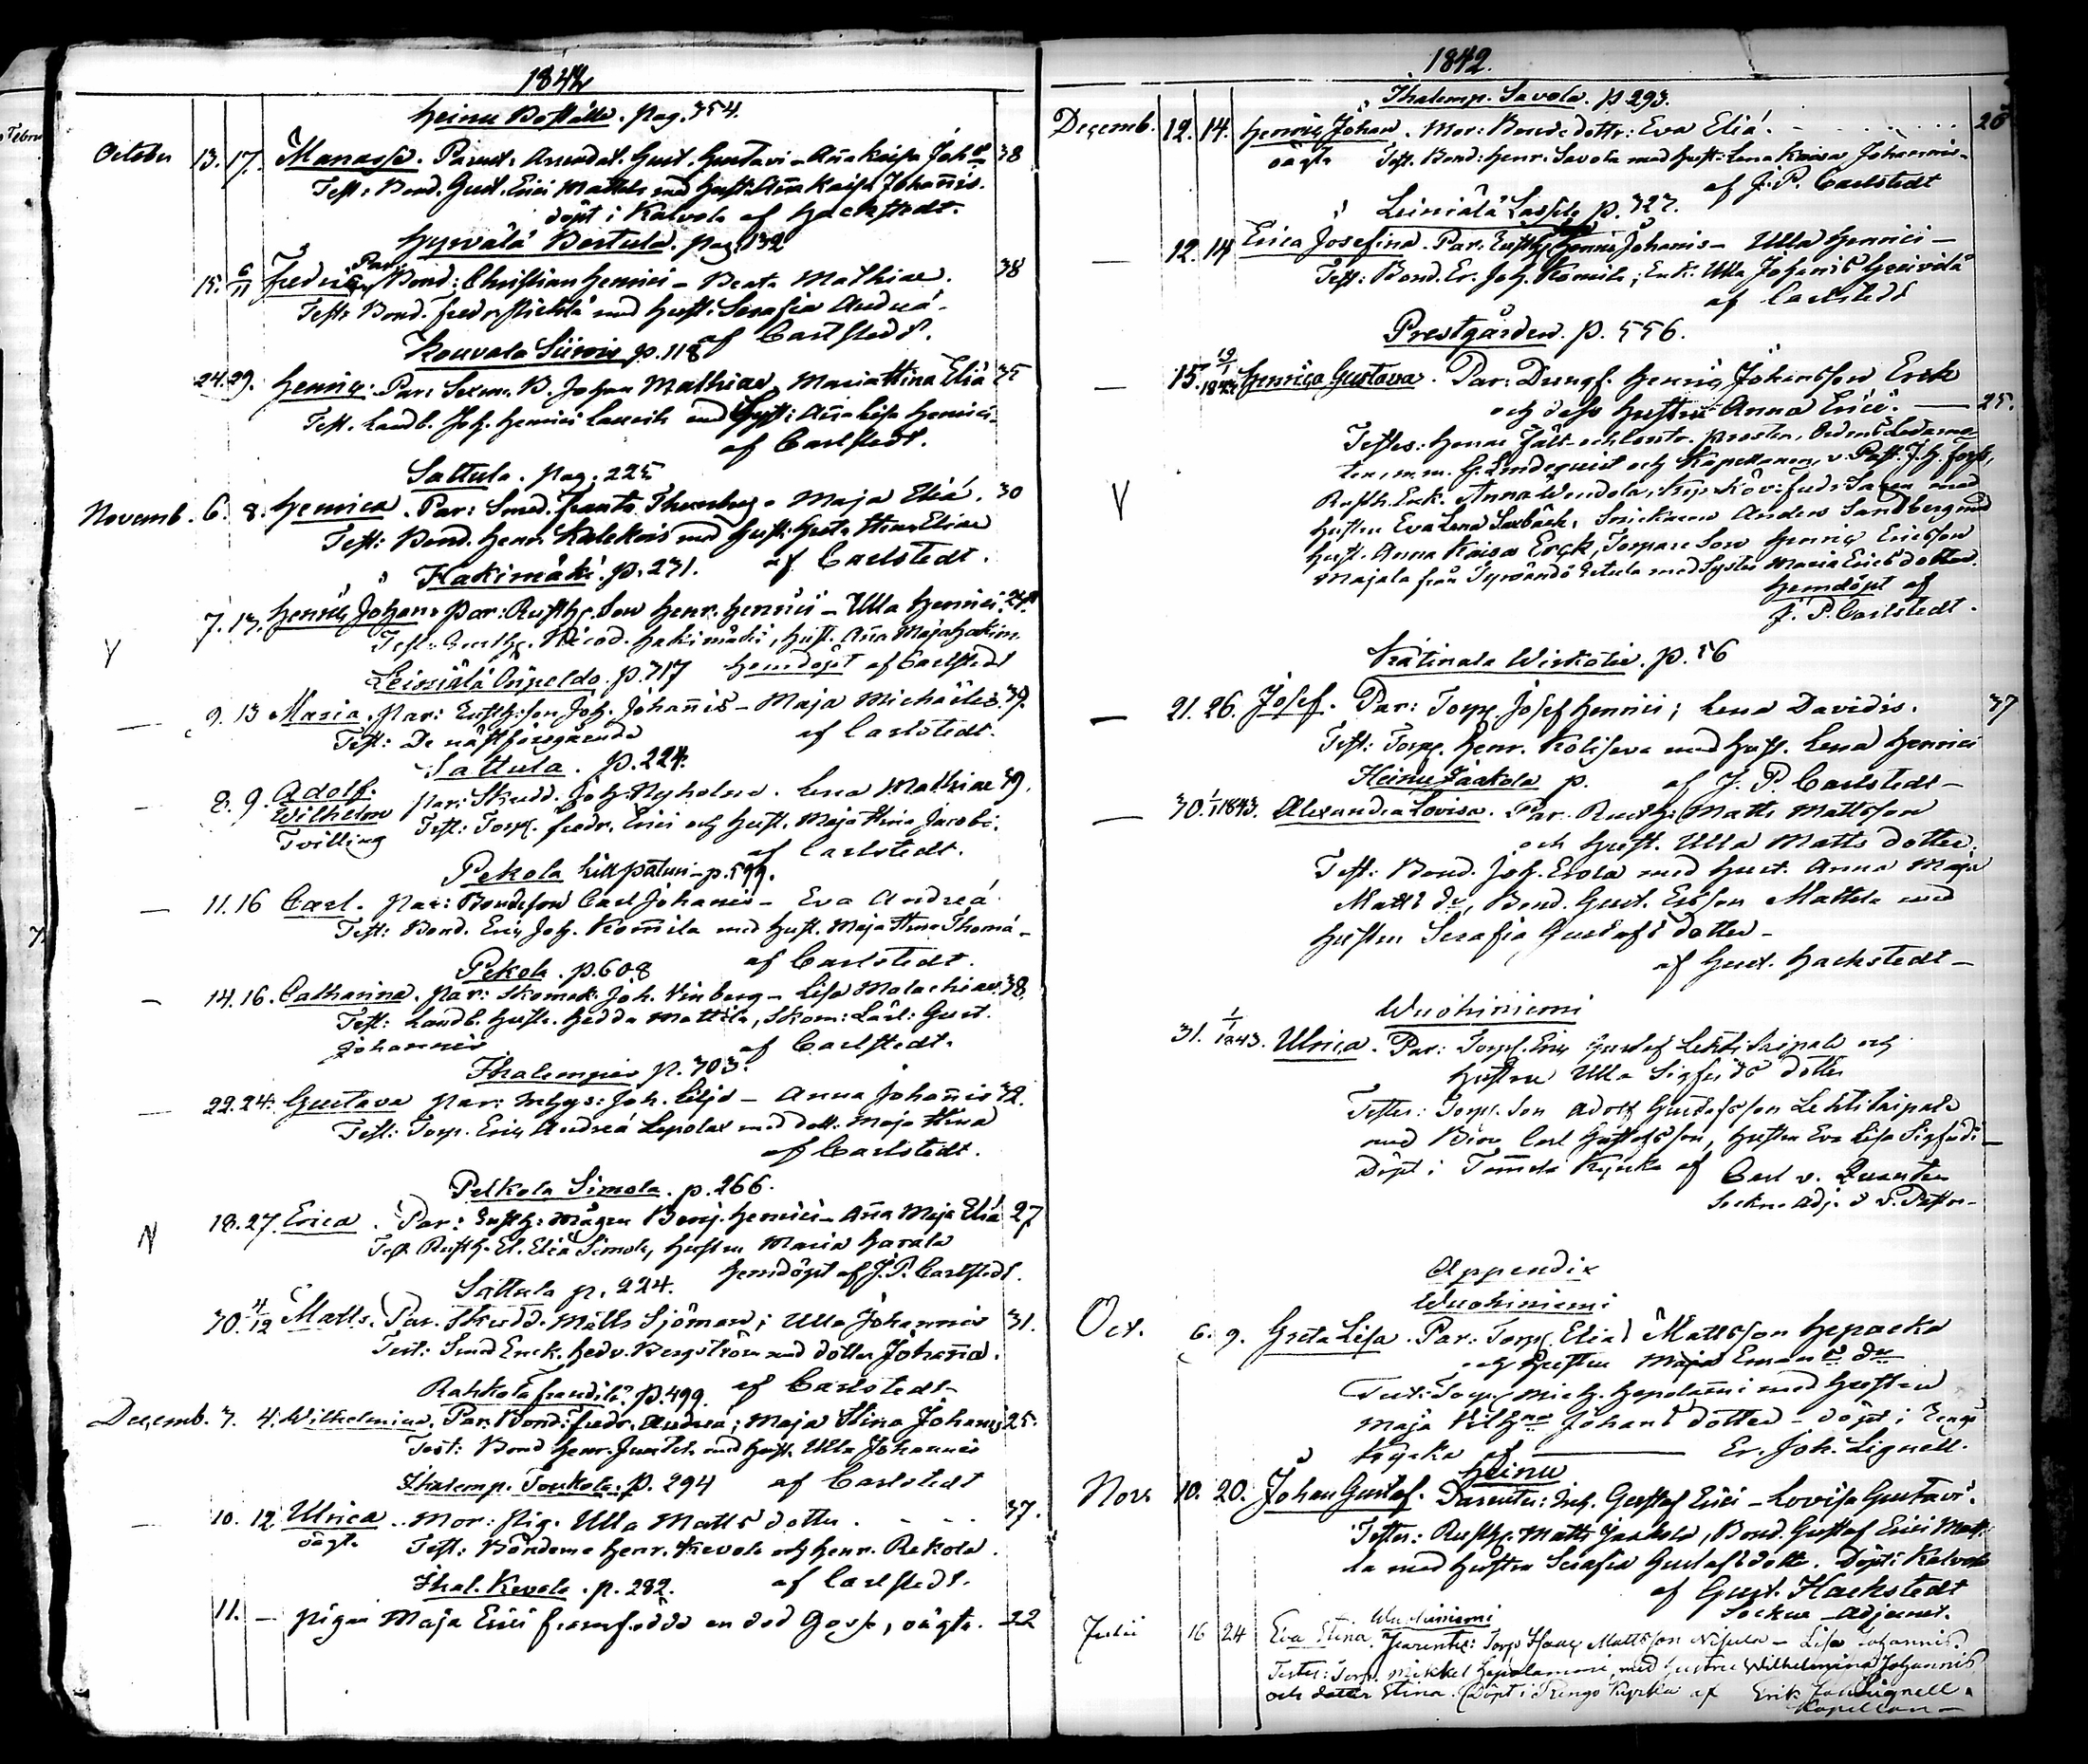 1842
Heinu Boställe. pag. 354.
October 13. 17. Manasse. Parent. Arrendat. Gust. Gustavi - Aña Kaisa Joh 38
Test: Bond. Gust. Erici Mattila med hust: Aña Kaisa Johañis.
döpt i Kalvola af Hackstedt.
Hyrvälä Bertula. pag. 132
15. 6/11 Fredric Par: Bond: Christian Henrici - Beata Mathiae. 38
Test: Bond. Fredr. med hust: Serafia Andreä.
af Carlstedt.
Kouvala Siiroin p. 118
24. 29. Henric. Par: Johan Mathiae, Maria Stina Eliä 35
Test. Landb. Joh. Henrici med Hust: Aña Lisa Henrici.
af Carlstedt.
Sattula. pag. 225
Novemb. 6. 8. Henrica. Par: Smed. Frants Thunberg - Maja Eliä. 30
Test: Bond. Henr. med Hust. Greta Stina Eliae
af Carlstedt.
Hakimäki. p. 231.
V 7. 13. Henric Johan. Par: Rusth. Son Henr. Henrici - Ulla Henrici.
Test: Rusth. Nicod. Hakimäki, Hust. Aña Maja Hakim.
hemdöpt af Carlstedt
Leiniälä Önneldo. p. 317
— 9. 13 Maria. Par: Rusth: son Joh. Johañis - Maja Michaelis. 39.
Test: De nästföregående af Carlstedt.
Sattula. p. 224.
— 8. 9. Adolf. Wilhelm Tvilling Par: Skradd. Joh. Nyholm. Lena Mathiae 39.
Test: Torp. Fredr. Erici och Hust. Maja Stina Jacobi.
af Carlstedt.
Pekola Lillpaturi - p. 599.
— 11. 16 Carl. Par: Bondeson Carl Johañis - Eva Andreä
Test: Bond. Eric Joh. Komila med Hust. Maja Stina Thomä -
af Carlstedt.
Pekola. p. 608
— 14. 16. Catharina. Par: Skomak. Joh. Vinberg - Lisa Malachiae. 38.
Test: Landb. hustr. Hedda Mattila, Skom: Lärl: Gust.
Johannis af Carlstedt.
Ihalempiä p. 303.
— 22. 24. Gustava Par: Inhys: Joh. Lilja - Anna Johañis 32.
Test: Torp. Eric Andreä Lepola med dott. Maja Stina
af Carlstedt.
Pelkola Simola. p. 266.
N 18. 27. Erica. Par: Rusth: Mågen Benj. Henrici - Aña Maja Eliä 27
Test Rusth. El. Eliä Simola, Hustru Maria Harala
hemdöpt af J. P. Carlstedt.
Sattula p. 224.
30. 4/12 Matts. Par. Skradd. Matts Sjöman; Ulla Johannis 31.
Test: Smed Enck. Hedv. Bergström med dotter Johaña.
af Carlstedt -
Rahkola Frandilä. p. 499
Decemb. 3. 4. Wilhelmina. Par. Bond: Fredr. Andreä; Maja Stina Johañis 25.
Test: Bond Henr. med Hust. Ulla Johannis
Ihalemp. Toukola. p. 294 af Carlstedt
— 10. 12 Ulrica Mor: Pig. Ulla Matts dotter. 37.
oägta Test: Bönderne Henr. Kevola och Henr. Rekola.
Ihal. Kevola. p. 282. af Carlstedt.
11. — Pigan Maja Erici framfödde en död Gosse, oägta. 22
1842.
Ihalemp. Savola. p 293.
Decemb. 12. 14. Henric Johan. Mor: Bonde dottr: Eva Eliä. 26
oägta Test. Bond: Henr. Savola med Hust: Lena Kaisa Johannis -
af J. P. Carlstedt
Leiniälä Lassila p. 323.
— 12. 14 Erica Josefina. Par. Rusth. Henric Johanis - Ulla Henrici -
Test: Bond. Er. Joh. Komila; Enk. Ulla Johanis
af Carlstedt
Prestgården. p. 556.
— 15. 19/1 1843 Henrica Gustava. Par: Dreng. Henric Johansson Erck
och dess hustru Anna Erici. — 25.
Testes: Herrar Fält- och Contr. prosten, Ordens Ledamo-
ten, m.m. G. Lindequist och Kapellanen, v. Past. J. H. Fors,
V Rusth. Enk. Anna Wendola, Fredr: Saxen med
hustru Eva Lena Saxbäck, Snickaren Anders Sandberg med
Hust. Anna Kaisa Erck, Torpare Son Henric Ericsson
Majala från Tyrvändö Retula med Syster Maria Ericsdotter.
Hemdöpt af
J. P. Carlstedt.
Kätinala Wirkotie. p. 56
— 21. 26. Josef. Par: Torp. Josef Henrici; Lena Davidis. 37
Test: Torp. Henr. Kolisova med Hust. Lena Henrici
Heinu Jaakola p. af J. P. Carlstedt -
— 30. 1/1 1843. Alexandra Lovisa. Par. Rusth: Matts Mattsson
och Hust. Ulla Matts dotter.
Test: Bond. Joh. Erola med Hust. Anna Maja
Matts dr, Bond. Gust. Ersson Mattila med
Hustru Serafia Gustafs dotter -
af Gust. Hackstedt -
Wuohiniemi
31. 1/1 1843. Ulrica. Par: Torp. Eric Gustaf Lehtisaipale och
hustru Ulla Sigfrids dotter
Testes: Torp. Son Adolf Gustafsson Lehtisaipale
med Bror Carl Gustafsson, hustru Eva Lisa Sigfridi -
Döpt i Tammela Kyrka af Carl v. Quanten
Sockne Adj. o v. Pastor -
Appendix
Wuohiniemi
Oct. 6. 9. Greta Lisa. Par: Torp. Elias Mattsson Hepaoka
och hustru Maja Emans dr
Test: Torp. Mich. Hepolammi med Hustru
Maja Vilhna Johans dotter - döpt i Rengo
Kyrka af — Er. Joh. Lignell.
Heinu
Nov. 10. 20. Johan Gustaf. Parentes: Inh. Gustaf Erici - Lovisa Gustavi.
Testes: Rusth. Matts Jaakola, Bond. Gustaf Erici Matti-
la med hustru Serafia Gustafsdotter. Döpt i Kalvola
af Gust. Hackstedt
Sockne-Adjunct.
Wuohiniemi
Julii 16 24 Eva Stina. Parentes: Torp Isaac Mattsson Nisula - Lisa Johannis.
Testes: Torp. Mikkel Hepolammi, med hustru Wilhelmina Johannis
och dotter Stina. Döpt i Rengo Kyrka af Erik Joh Lignell.
Kapellan -